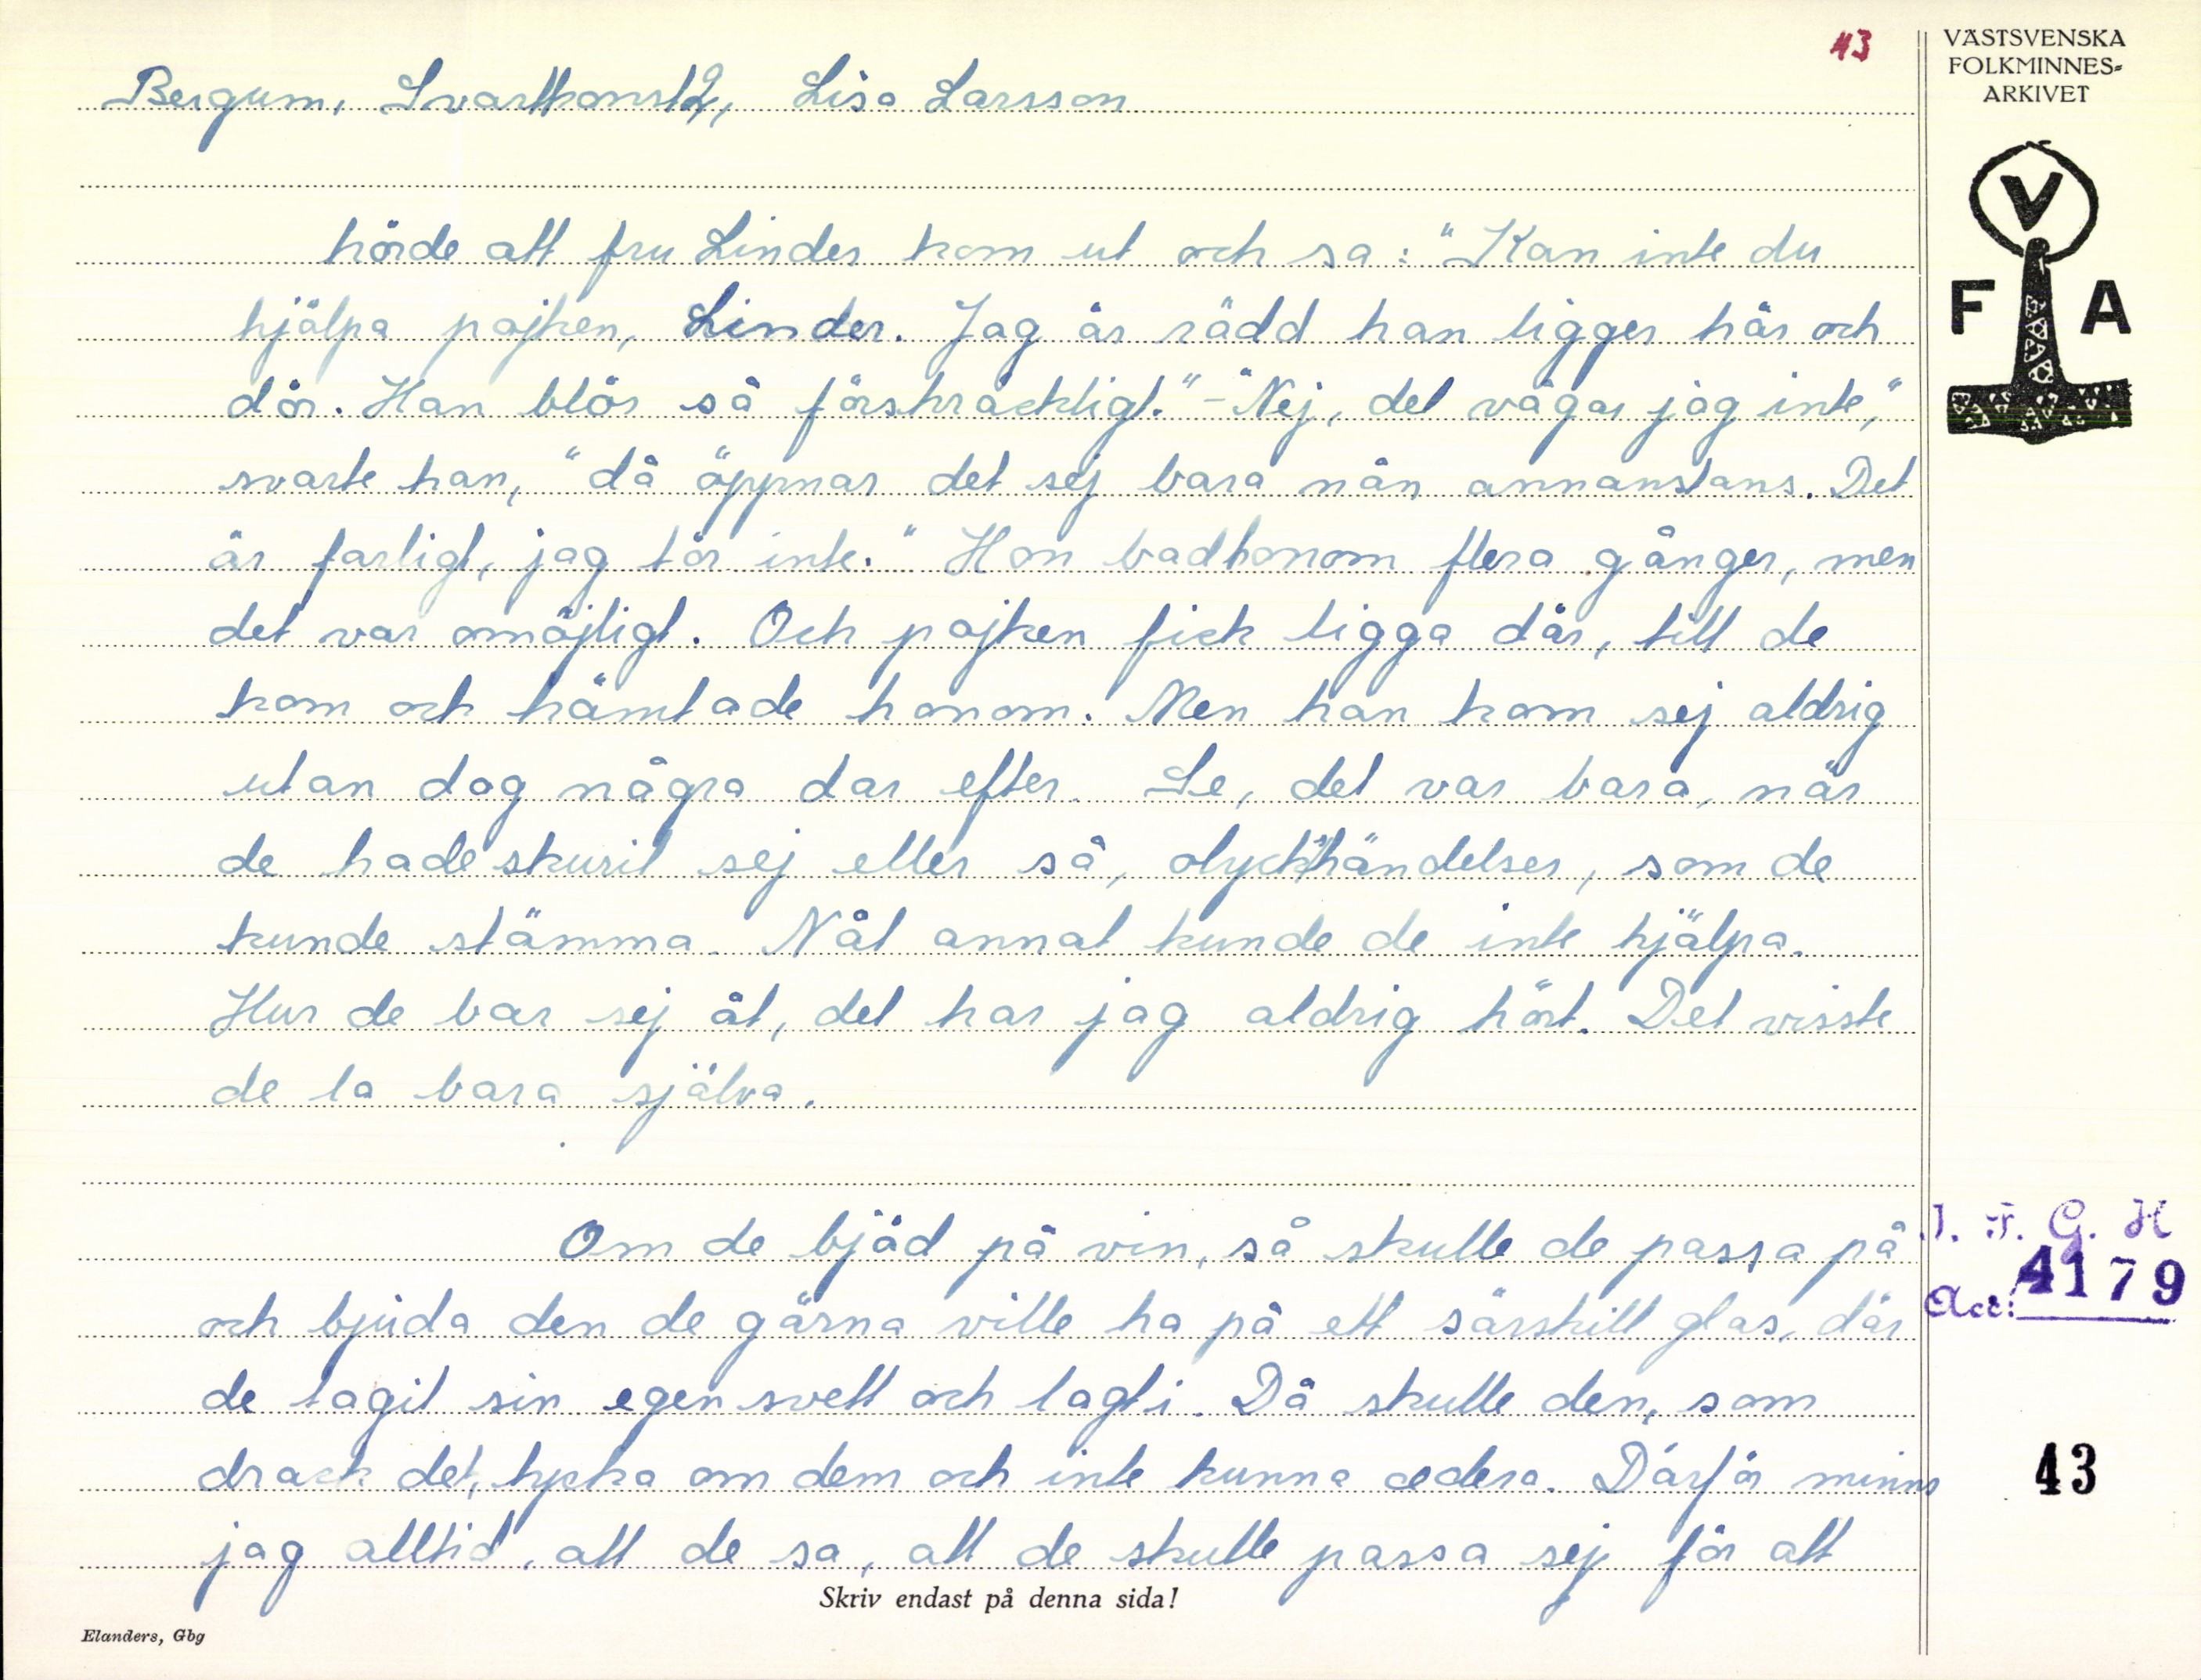 43
VÄSTSVENSKA
FOLKMINNES-
ARKIVET
Bergum, Svartkonst 2, Lisa Larsson
V
F A
hörde att fru Linder kom ut och sa: "Kan inte du
hjälpa pojken, Linder. Jag är rädd han ligger här och
dör. Han blör så förskräckligt." - "Nej, det vågar jag inte,"
svarte han, "då öppnar det sej bara nån annanstans. Det
är farligt, jag tör inte." Hon bad honom flera gånger, men
det var omöjligt. Och pojken fick ligga där, till de
kom och hämtade honom. Men han kom sej aldrig
utan dog några dar efter. Se, det var bara, när
de hade skurit sej eller så, olyckshändelser, som de
kunde stämma. Nåt annat kunde de inte hjälpa.
Hur de bar sej åt, det har jag aldrig hört. Det visste
de la bara själva.
Om de bjöd på vin, så skulle de passa på
och bjuda den de gärna ville ha på ett särskilt glas, där
de tagit sin egen svett och lagt i. Då skulle den, som
drack det, tycka om dem och inte kunna cedera. Därför minns
jag alltid, att de sa, att de skulle passa sej för att
I. F. G. H
Acc: 4179
43
Skriv endast på denna sida!
Elanders, Gbg